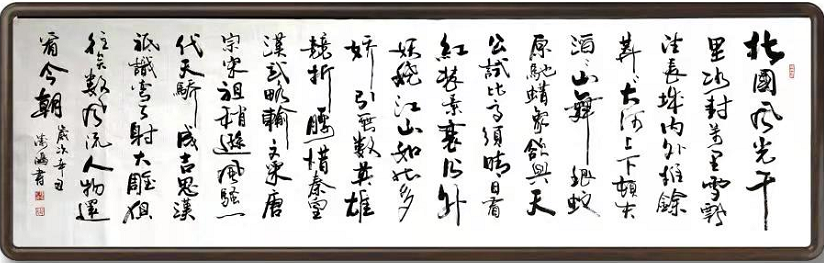 北國风光千
里冰封萬里雪飄
望長城内外惟餘
莽々大河上下頓失
滔々山舞銀蛇
原馳蜡象欲與天
公試比高須晴日看
紅裝素裹分外
妖嬈江山如此多
嬌引無數英雄
競折腰惜秦皇
漢武略輸文采唐
宗宋祖稍遜風騷一
代天驕成吉思漢
祇識彎弓射大雕俱
往矣數风流人物還
看今朝
歲次辛丑
書